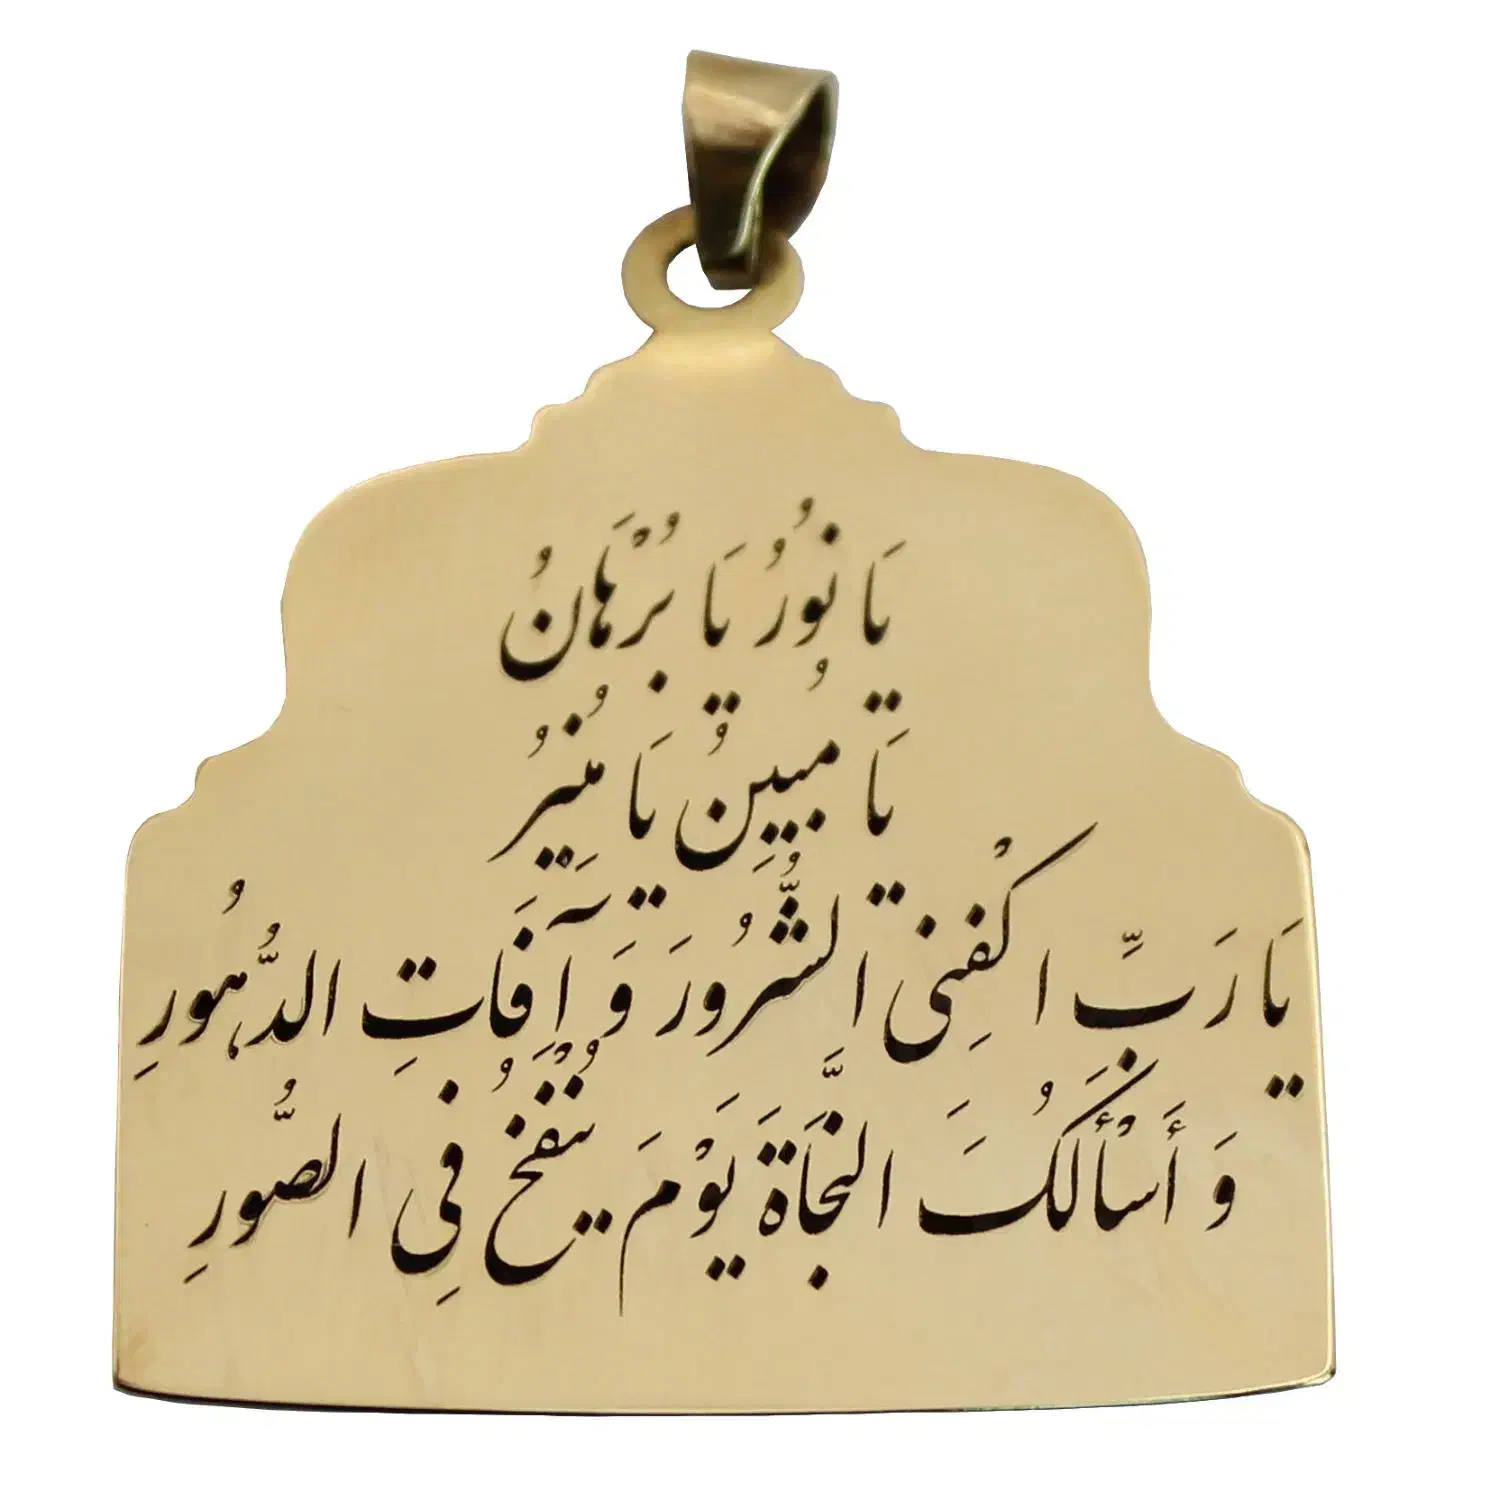 يَا نُورُ يَا بُرْهَانُ
يَا مُبِينُ يَا مُنِيرُ
يَا رَبِّ اكْفِنِی الشُّرُورَ وَ آفَاتِ الدُّهُورِ
وَ أَسْأَلُكَ النَّجَاةَ يَوْمَ يُنْفَخُ فِی الصُّورِ